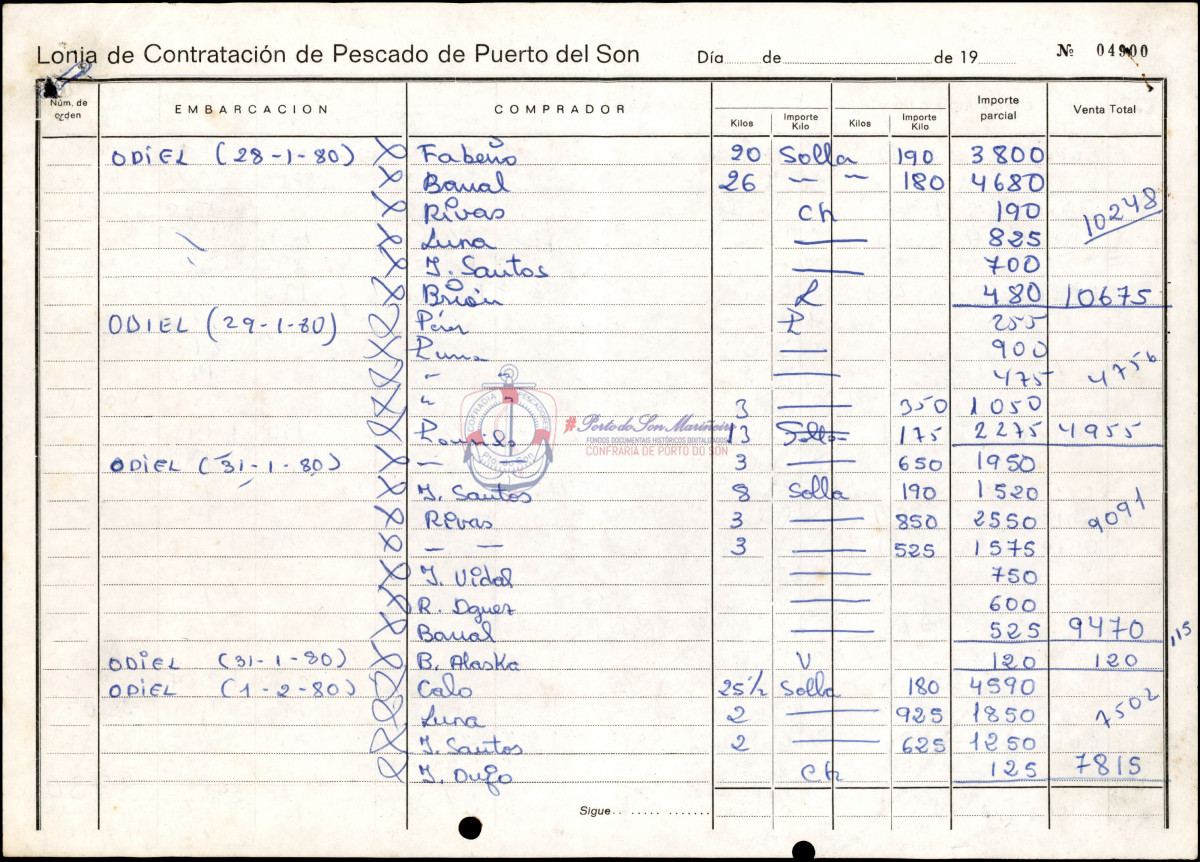 Lonja de Contratación de Pescado de Puerto del Son Día de de 19 Nº 04900
Núm. de orden EMBARCACION COMPRADOR Kilos Importe Kilo Kilos Importe Kilo Importe parcial Venta Total
ODIEL (28-1-80) Fabeño 20 Solla 190 3800
Banal 26 — " 180 4680
Rivas Ch 190 10248
Luna — 825
J. Santos — 700
Brión L 480 10675
ODIEL (29-1-80) 255
— 900
— " — 475 4756
" 3 — 350 1050
13 Solla 175 2275 4955
ODIEL (31-1-80) — 3 — 650 1950
J. Santos 8 Solla 190 1520
Rivas 3 — 850 2550 9091
— — 3 — 525 1575
J. Vidal — 750
R. Dguez — 600
Banal — 525 9470 115
ODIEL (31-1-80) B. Alaska V 120 120
ODIEL (1-2-80) Calo 25½ Solla 180 4590
Luna 2 — 925 1850 7502
J. Santos 2 — 625 1250
J. Dujo Ch 125 7815
Sigue
COFRADIA PESCADORES
Pto. do Son
#Porto do Son Mariñeiro
FONDOS DOCUMENTAIS HISTÓRICOS DIXITALIZADOS
CONFRARIA DE PORTO DO SON